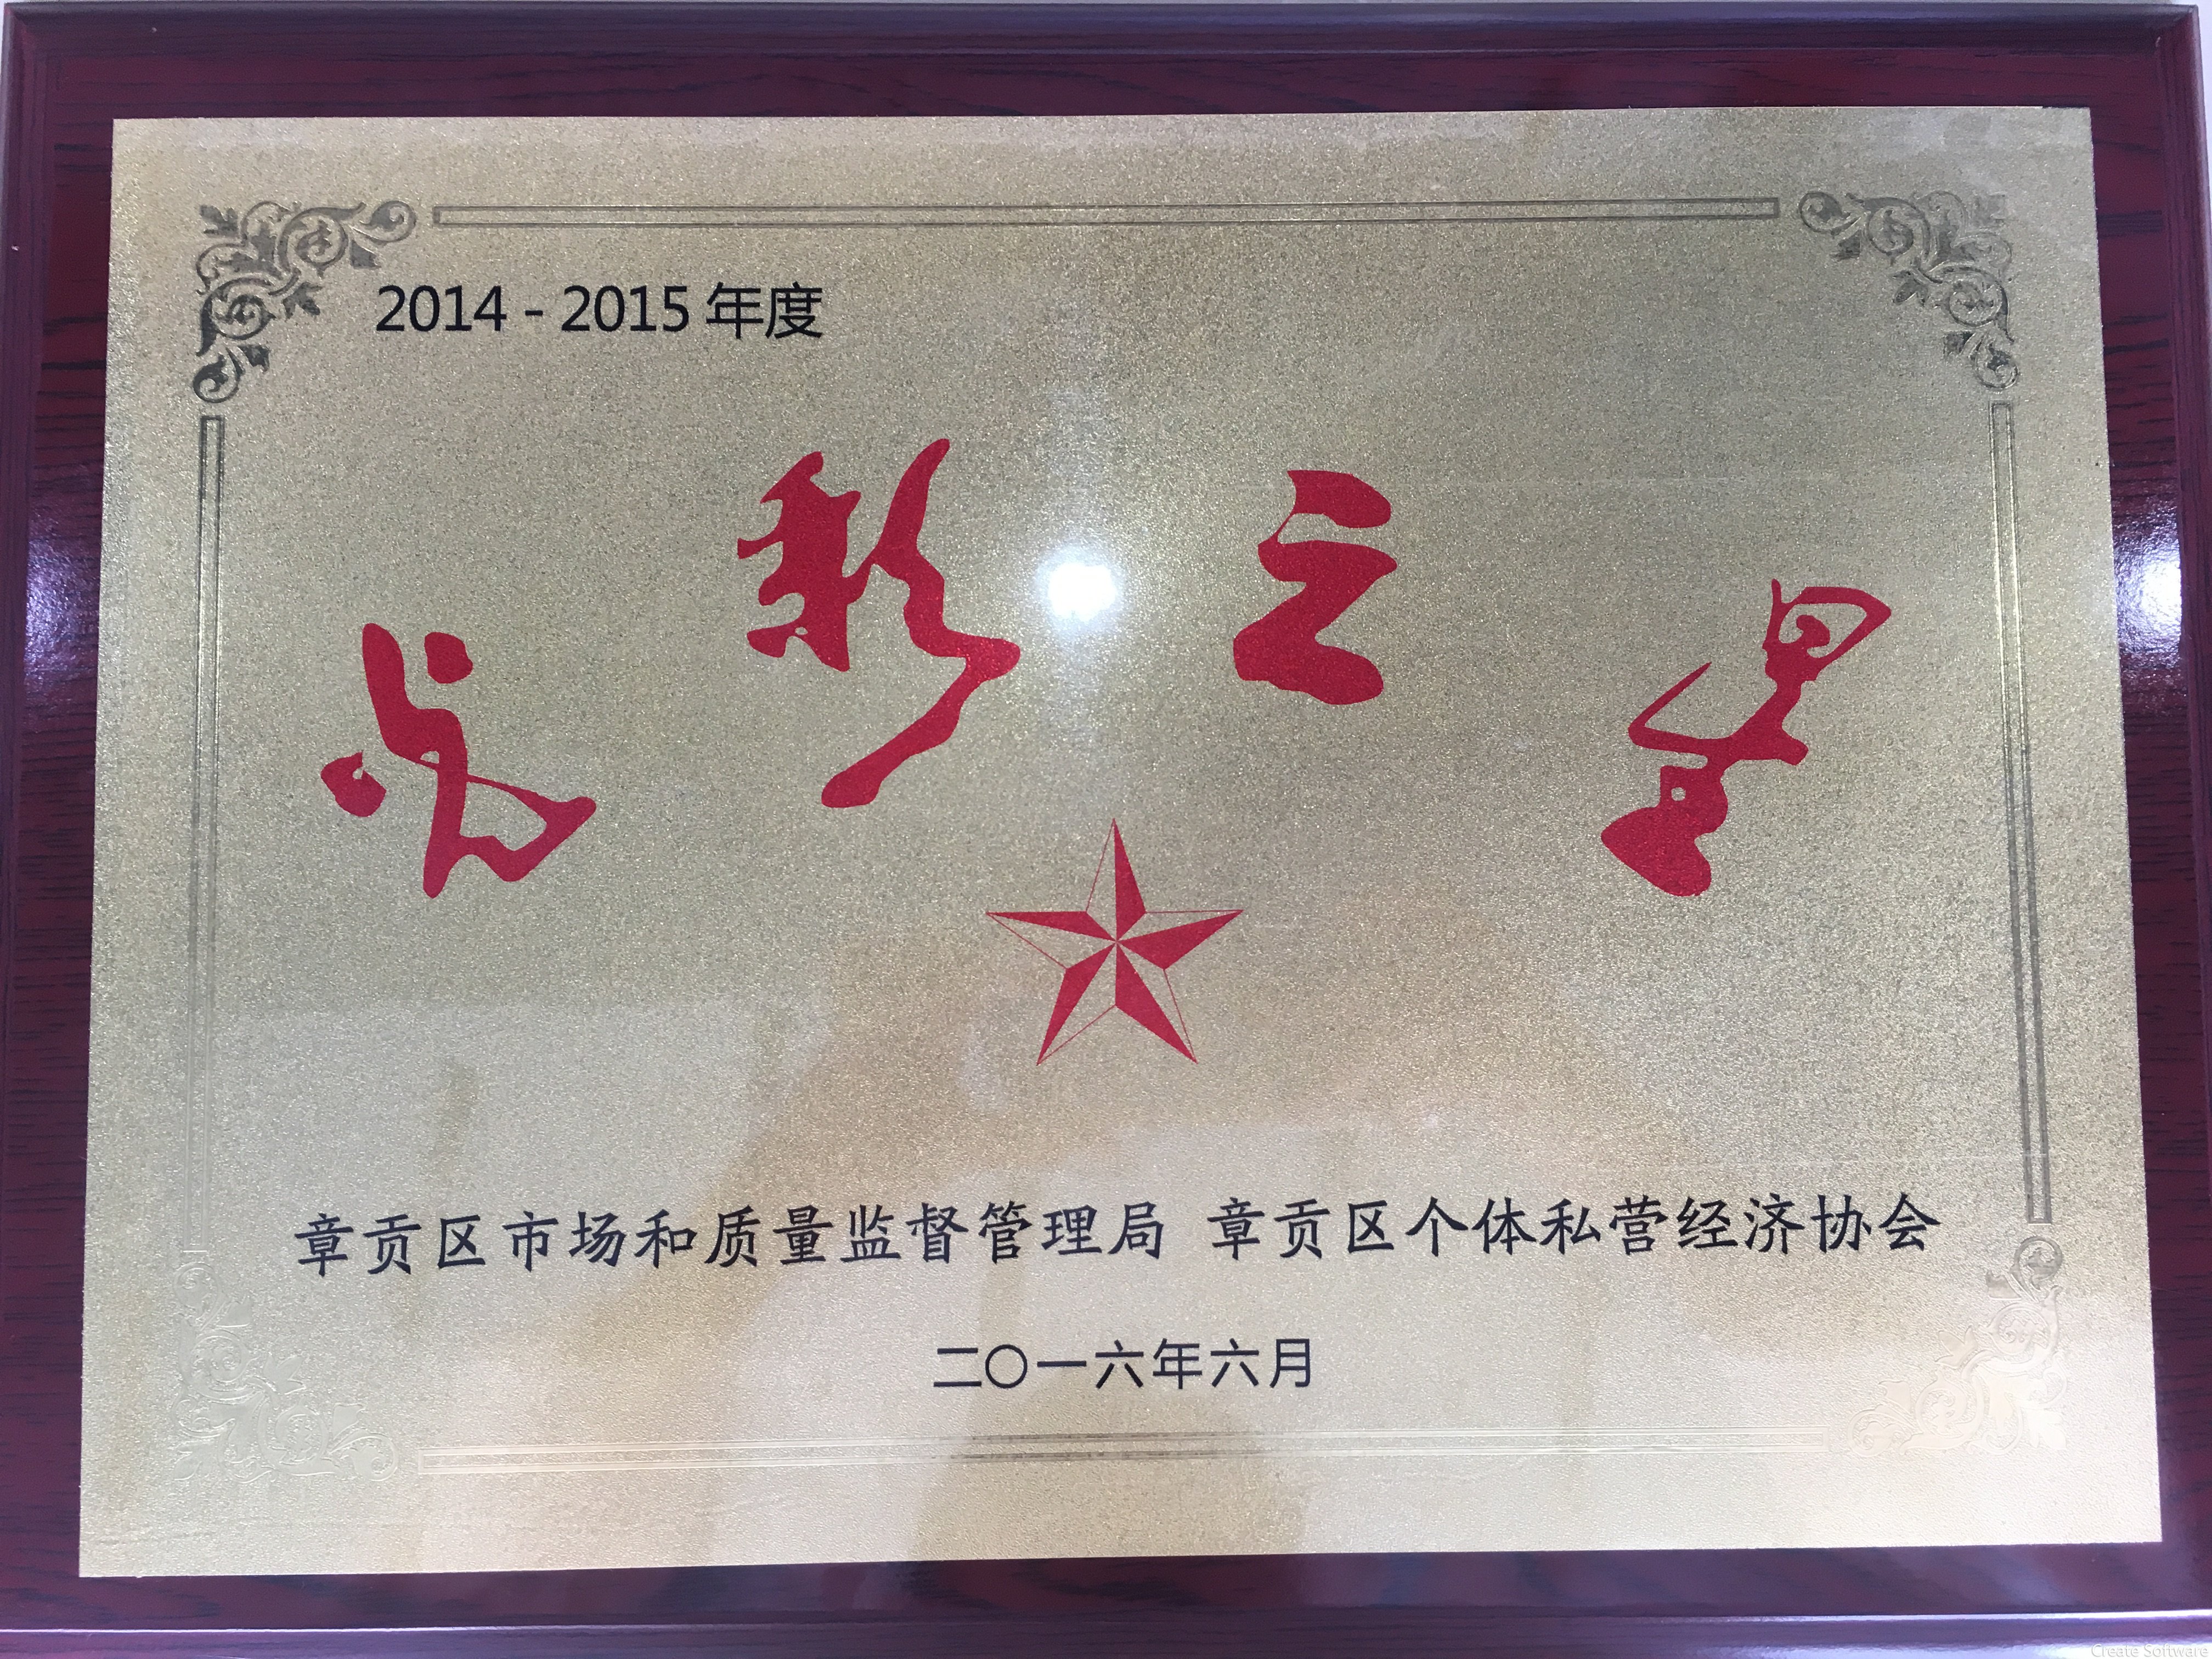 2014 - 2015 年度
光彩之星
章贡区市场和质量监督管理局 章贡区个体私营经济协会
二〇一六年六月
Create Software